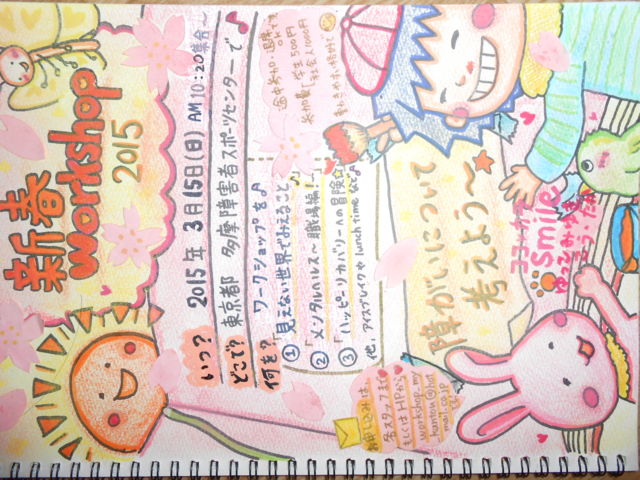 新春
workshop
2015
いつ? 2015年 3月15日(日) AM 10:20集合〜
どこで? 東京都 多摩障害者スポーツセンターで♪
何を? ワークショップを♪
① 「見えない世界でみえること」
② 「メンタルヘルス〜職場編!」
③ 「ハッピーリカバリーへの冒険☆」
他、アイスブレイクや lunch time など♪
途中参加・退席
OKです
参加費 学生 500円
社会人 1000円
動きやすい格好で
障がいについて
考えよう〜
smile
お申し込みは、
各スタッフまで
もしくはHPから
workshop.my
@hot
mail.co.jp